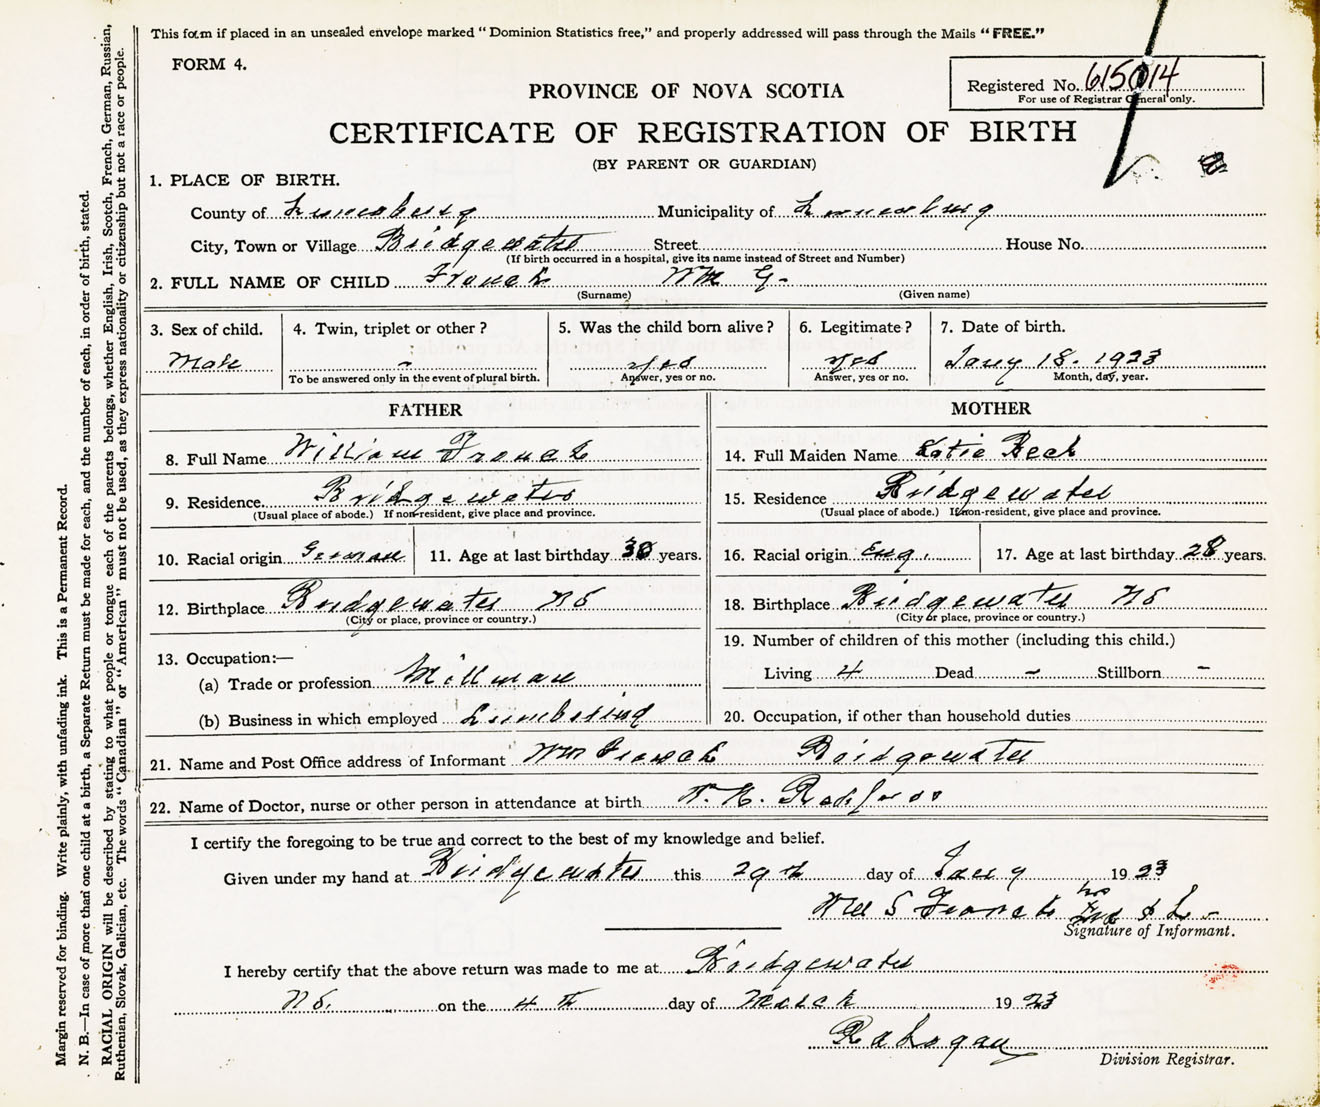 This form if placed in an unsealed envelope marked "Dominion Statistics free," and properly addressed will pass through the Mails "FREE."
FORM 4.
Registered No. 615014
For use of Registrar General only.
PROVINCE OF NOVA SCOTIA
CERTIFICATE OF REGISTRATION OF BIRTH
(BY PARENT OR GUARDIAN)
1. PLACE OF BIRTH.
County of Lunenburg Municipality of Lunenburg
City, Town or Village Bridgewater Street House No.
(If birth occurred in a hospital, give its name instead of Street and Number)
2. FULL NAME OF CHILD Wm G.
(Surname) (Given name)
3. Sex of child. 4. Twin, triplet or other? 5. Was the child born alive? 6. Legitimate? 7. Date of birth.
Male - yes yes Jany 18. 1923
To be answered only in the event of plural birth. Answer, yes or no. Answer, yes or no. Month, day, year.
FATHER MOTHER
8. Full Name William 14. Full Maiden Name Katie
9. Residence Bridgewater 15. Residence Bridgewater
(Usual place of abode.) If non-resident, give place and province. (Usual place of abode.) If non-resident, give place and province.
10. Racial origin German 11. Age at last birthday 38 years. 16. Racial origin Eng. 17. Age at last birthday 28 years.
12. Birthplace Bridgewater NS 18. Birthplace Bridgewater NS
(City or place, province or country.) (City or place, province or country.)
13. Occupation:— 19. Number of children of this mother (including this child.)
(a) Trade or profession Millman Living 4 Dead - Stillborn -
(b) Business in which employed Lumbering 20. Occupation, if other than household duties
21. Name and Post Office address of Informant Wm Bridgewater
22. Name of Doctor, nurse or other person in attendance at birth
I certify the foregoing to be true and correct to the best of my knowledge and belief.
Given under my hand at Bridgewater this 29th day of Jany 1923
Signature of Informant.
I hereby certify that the above return was made to me at Bridgewater
NS. on the 4th day of March 1923
Division Registrar.
Margin reserved for binding. Write plainly, with unfading ink. This is a Permanent Record.
N. B.—In case of more than one child at a birth, a Separate Return must be made for each, and the number of each, in order of birth, stated.
RACIAL ORIGIN will be described by stating to what people or tongue each of the parents belongs, whether English, Irish, Scotch, French, German, Russian,
Ruthenian, Slovak, Galician, etc. The words "Canadian" or "American" must not be used, as they express nationality or citizenship but not a race or people.